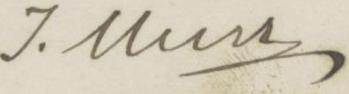 J. Murr